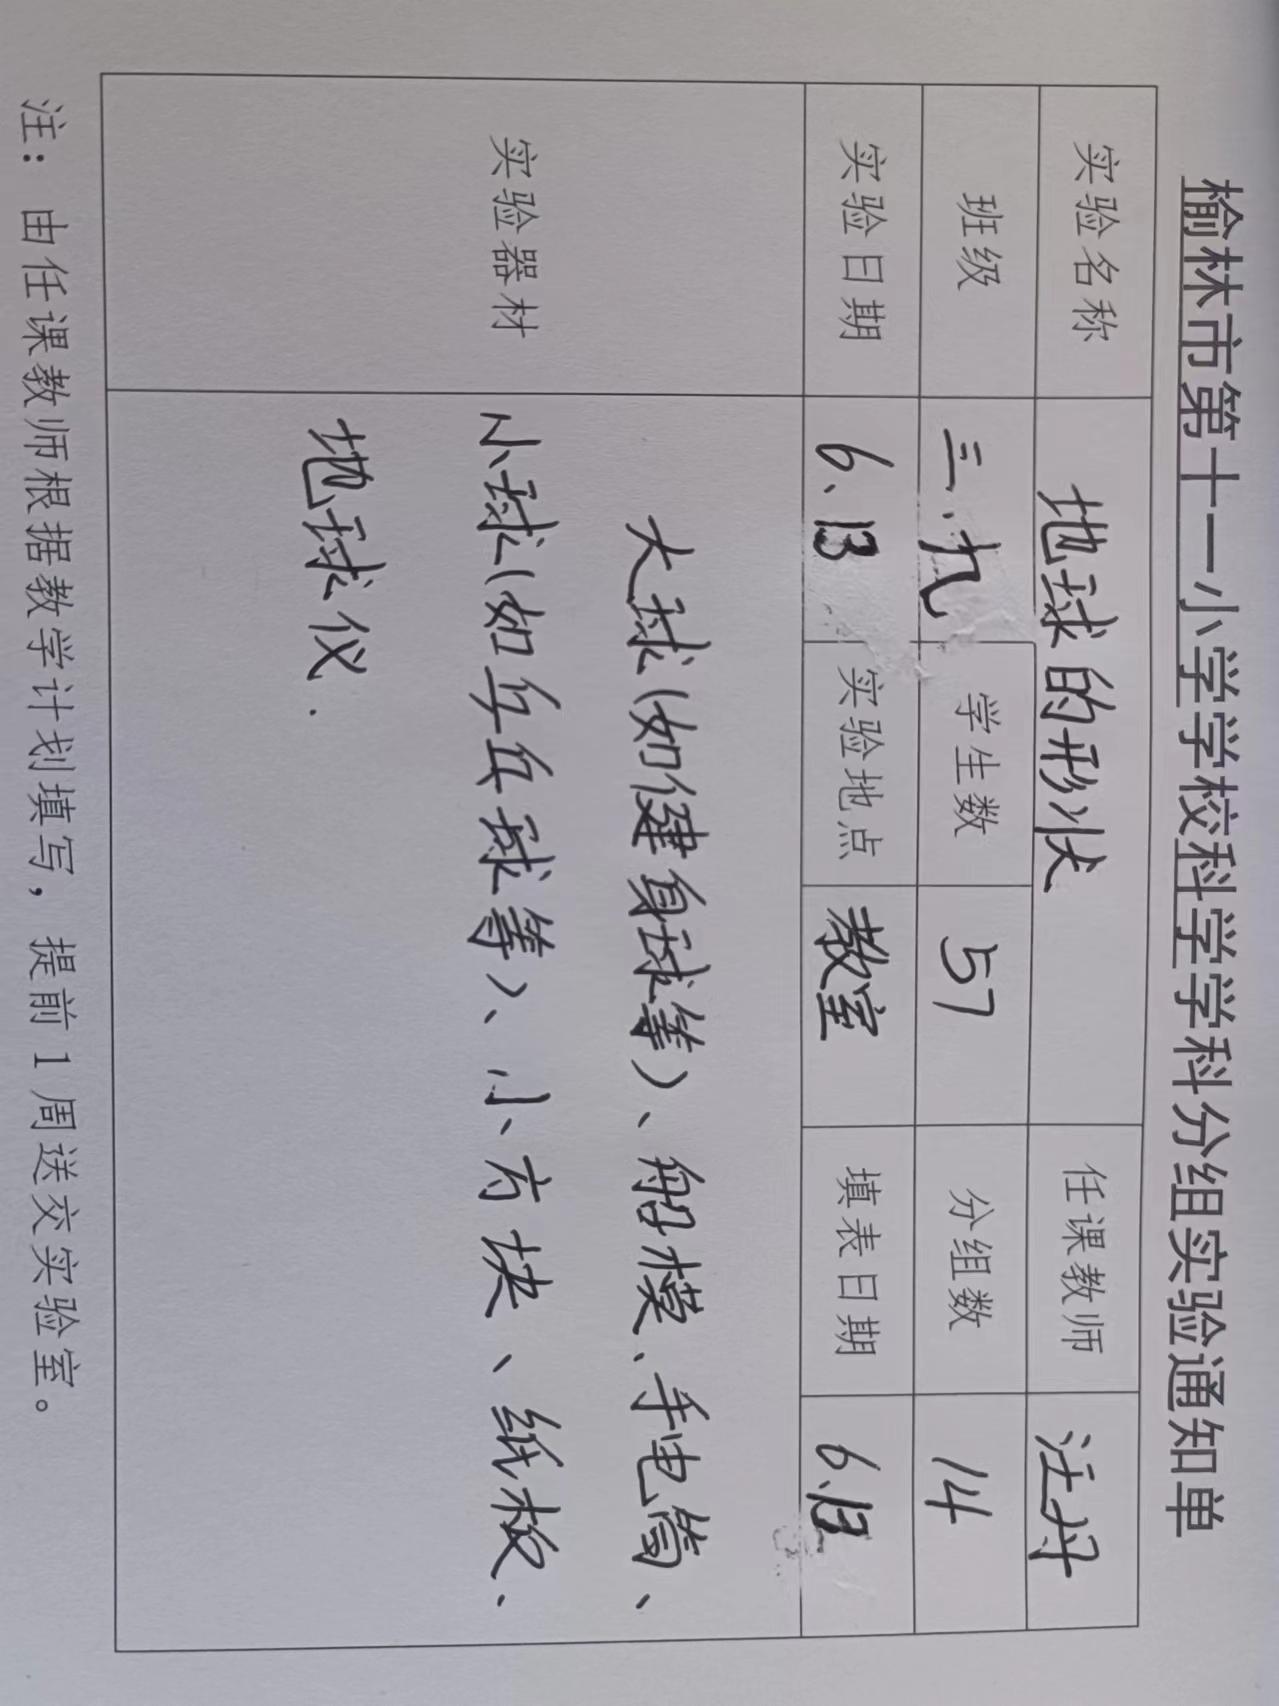 榆林市第十一小学学校科学学科分组实验通知单
实验名称 地球的形状 任课教师 汪丹
班级 三.九 学生数 57 分组数 14
实验日期 6.13 实验地点 教室 填表日期 6.13
实验器材
大球(如健身球等)、船模、手电筒、
小球(如乒乓球等)、小方块、纸板、
地球仪.
注：由任课教师根据教学计划填写，提前1周送交实验室。